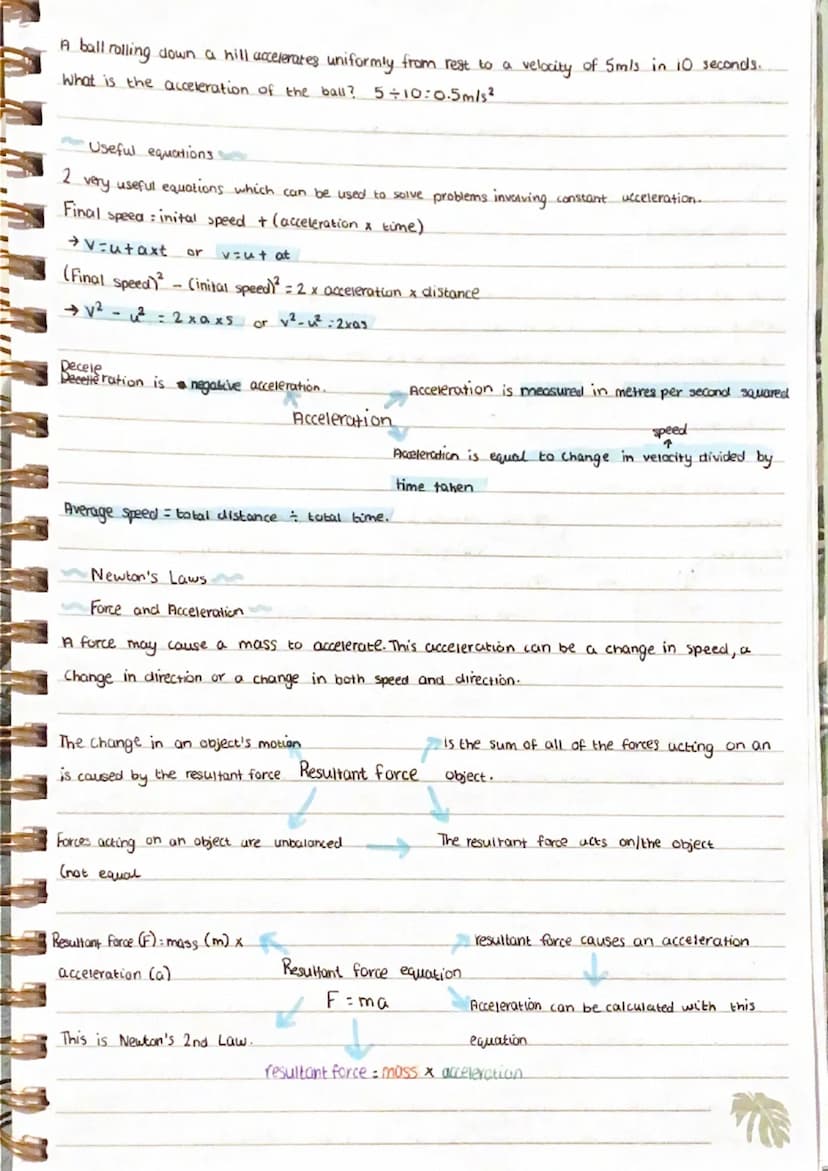 A ball rolling down a hill accelerates uniformly from rest to a velocity of 5m/s in 10 seconds.
What is the acceleration of the ball? 5÷10=0.5m/s²
Useful equations
2 very useful equations which can be used to solve problems involving constant acceleration.
Final speed = inital speed + (acceleration x time)
→ v=u+axt or v=u+at
(Final speed)² - (inital speed)² = 2 x acceleration x distance
→ v² - u² = 2xaxs or v²-u²=2xas
Decele
Deceleration is negative acceleration.
Acceleration is measured in metres per second squared
Acceleration
speed
↑
Acceleration is equal to change in velocity divided by
time taken
Average speed = total distance ÷ total time.
Newton's Laws
Force and Acceleration
A force may cause a mass to accelerate. This acceleration can be a change in speed, a
change in direction or a change in both speed and direction.
The change in an object's motion
is caused by the resultant force
Resultant force
is the sum of all of the forces acting on an
object.
Forces acting on an object are unbalanced
(not equal
→ The resultant force acts on/the object
Resultant force (F) = mass (m) x
acceleration (a)
Resultant force equation
F = ma
resultant force causes an acceleration
Acceleration can be calculated with this
equation
This is Newton's 2nd Law.
resultant force = mass x acceleration